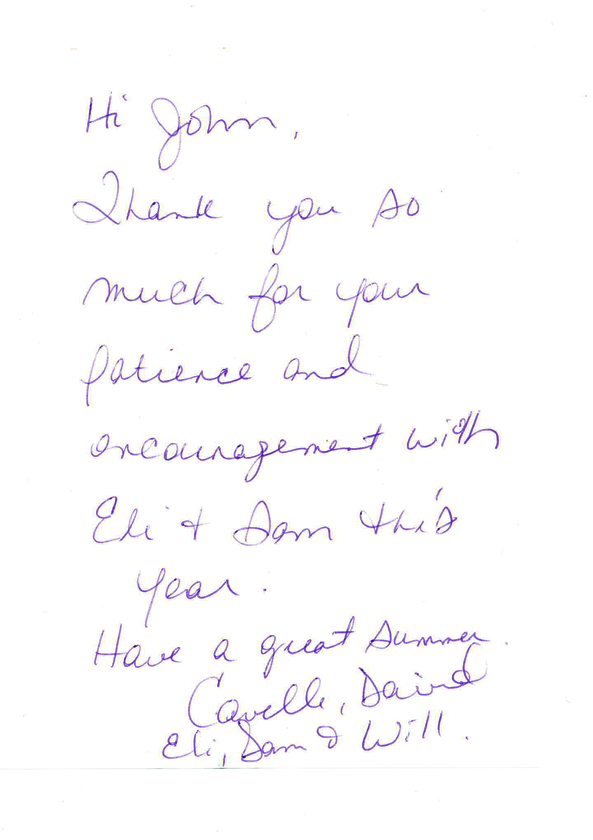 Hi John,
Thank you so
much for your
patience and
encouragement with
Eli + Sam this
year.
Have a great summer.
Cavelle, David
Eli, Sam & Will.